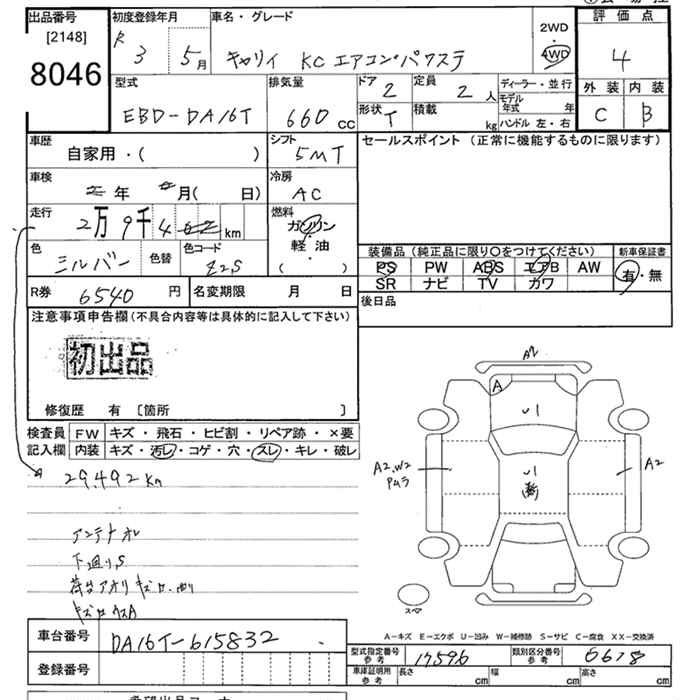 出品番号 [2148] 8046
初度登録年月 R 3 5月
車名・グレード キャリイ KC エアコン・パワステ
2WD ・ 4WD
評価点 4
外装 内装
C B
型式 EBD-DA16T
排気量 660 cc
ドア 2
定員 2 人
形状 T
積載 kg
ディーラー・並行
モデル年式 年
ハンドル 左・右
車歴 自家用・( )
シフト 5MT
セールスポイント (正常に機能するものに限ります)
車検 年 月( 日)
冷房 AC
走行 2万9千4 km
燃料 ガソリン ・ 軽油 ( )
色 シルバー 色替
色コード Z2S
装備品 (純正品に限り○をつけてください) 新車保証書
PS PW ABS エアB AW 有・無
SR ナビ TV カワ
R券 6540 円
名変期限 月 日
後日品
注意事項申告欄 (不具合内容等は具体的に記入して下さい)
初出品
修復歴 有 [箇所 ]
検査員 FW キズ・飛石・ヒビ割・リペア跡・×要
記入欄 内装 キズ・汚レ・コゲ・穴・スレ・キレ・破レ
29,492 km
アンテナオレ
下廻りS
荷台アオリ キズ
A2
A
A2.W2
A2
スペア
A-キズ E-エクボ U-凹み W-補修跡 S-サビ C-腐食 XX-交換済
車台番号 DA16T-615832
型式指定番号 参考 17596
類別区分番号 参考 6618
登録番号
車庫証明用 参考 長さ cm 幅 cm 高さ cm